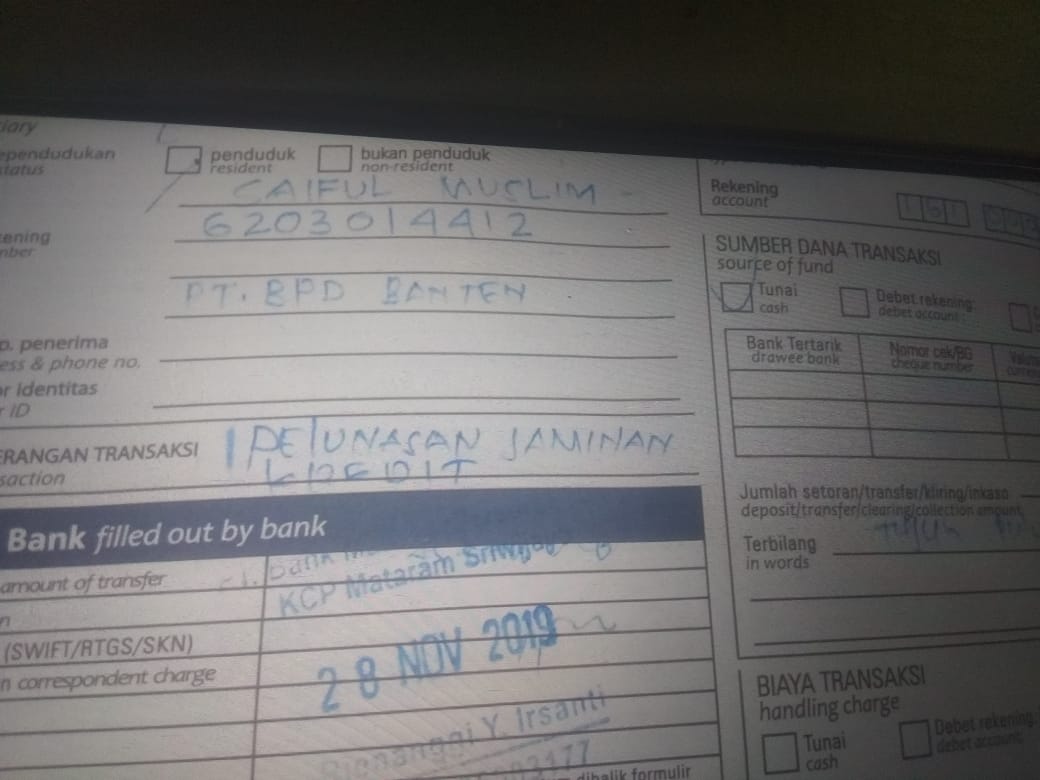 penduduk
resident
bukan penduduk
non-resident
CAIFUL MUSLIM
6203014412
PT. BPD BANTEN
p. penerima
ess & phone no.
r Identitas
r ID
ERANGAN TRANSAKSI
saction
PElUNASAN JAMINAN
KREDIT
Bank filled out by bank
amount of transfer
KCP Mataram
(SWIFT/RTGS/SKN)
n correspondent charge
28 NOV 2019
Y. Irsanti
dibalik formulir
Rekening
account
SUMBER DANA TRANSAKSI
source of fund
Tunai
cash
Debet rekening:
debet account:
Bank Tertarik
drawee bank
Nomor cek/BG
cheque number
Jumlah setoran/transfer/kliring/inkaso
deposit/transfer/clearing/collection amount
Terbilang
in words
BIAYA TRANSAKSI
handling charge
Tunai
cash
Debet rekening:
debet account: